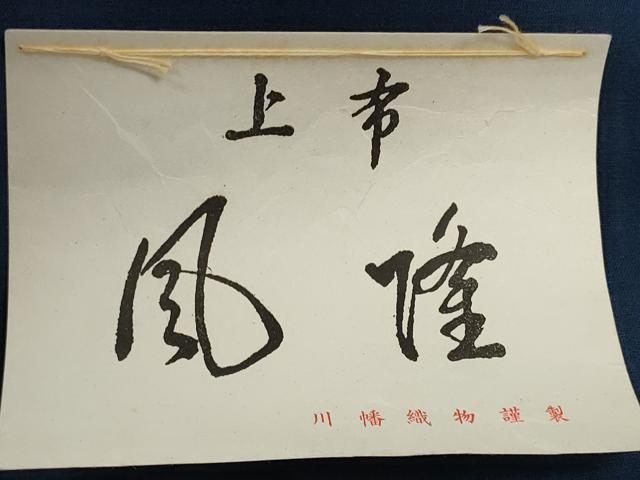 上布
风隆
川幡織物謹製